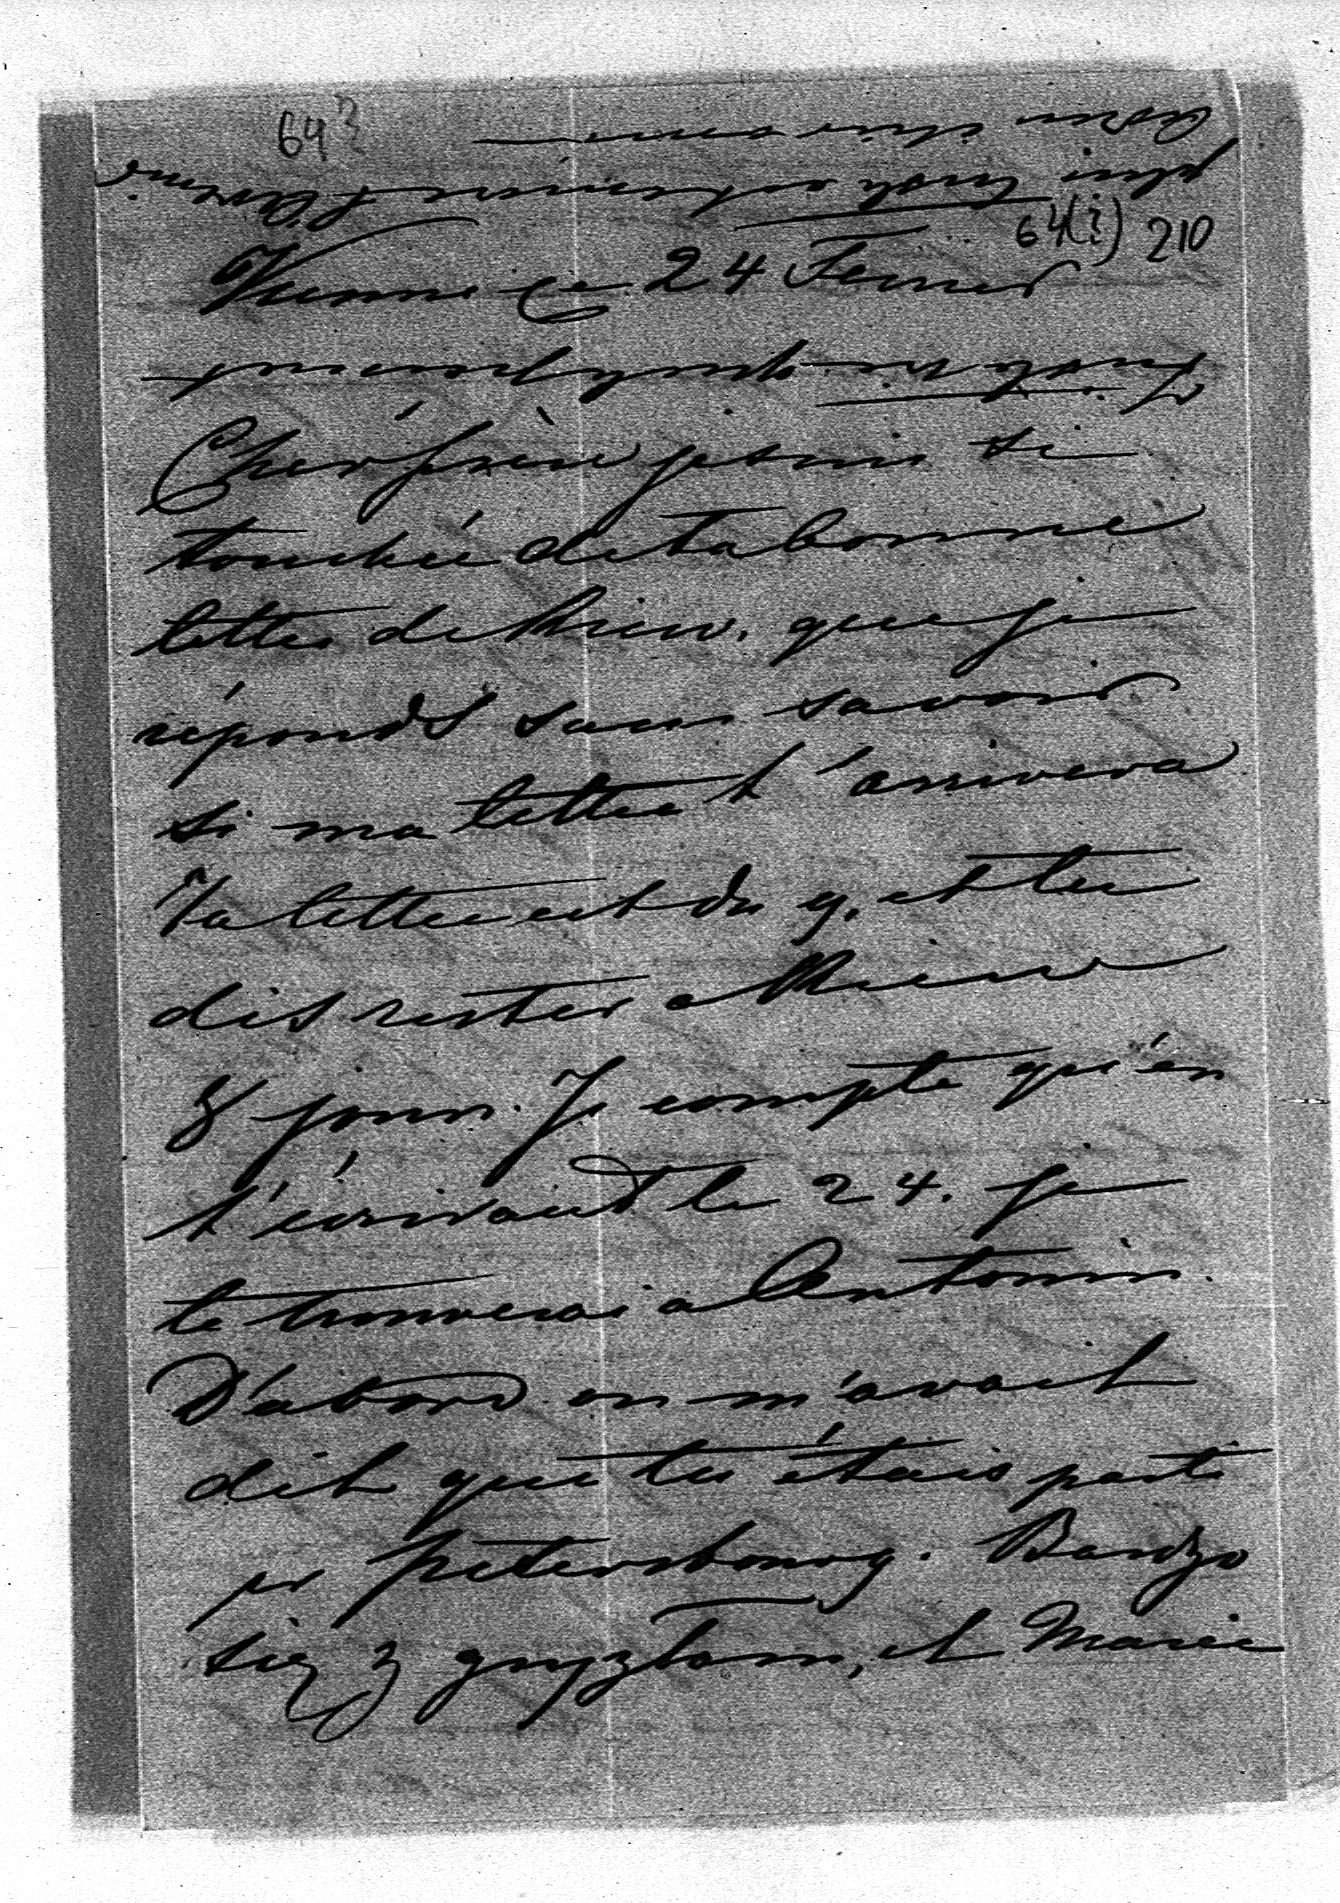 64
64(i) 210
Vienne ce 24 Fevrier
Cher frère je suis si
touchée de ta bonne
lettre de Kiew, que je
réponds sans savoir
si ma lettre t'arrivera
Ta lettre est du 9, et tu
dis rester a Kiew
8 jours. Je compte qu'en
t'écrivant le 24. je
te trouverai a Antonin.
D'abord on m'avait
dit que tu étais parti
pr Petersbourg. Bardzo
się z gryzłam, et Marie